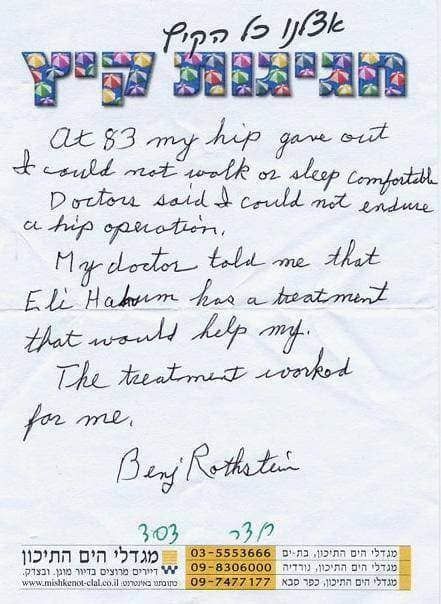 אצלנו כל הקיץ
חגיגות קיץ
At 83 my hip gave out
I could not walk or sleep comfortable
Doctors said I could not endure
a hip operation.
My doctor told me that
Eli Hakum has a treatment
that would help my.
The treatment worked
for me.
Benj Rothstein
חדר
מגדלי הים התיכון
דיירים מרוצים בדיור מוגן. ובצדק.
כתובתנו באינטרנט: www.mishkenot-clal.co.il
מגדלי הים התיכון, בת-ים 03-5553666
מגדלי הים התיכון, נורדיה 09-8306000
מגדלי הים התיכון, כפר סבא 09-7477177